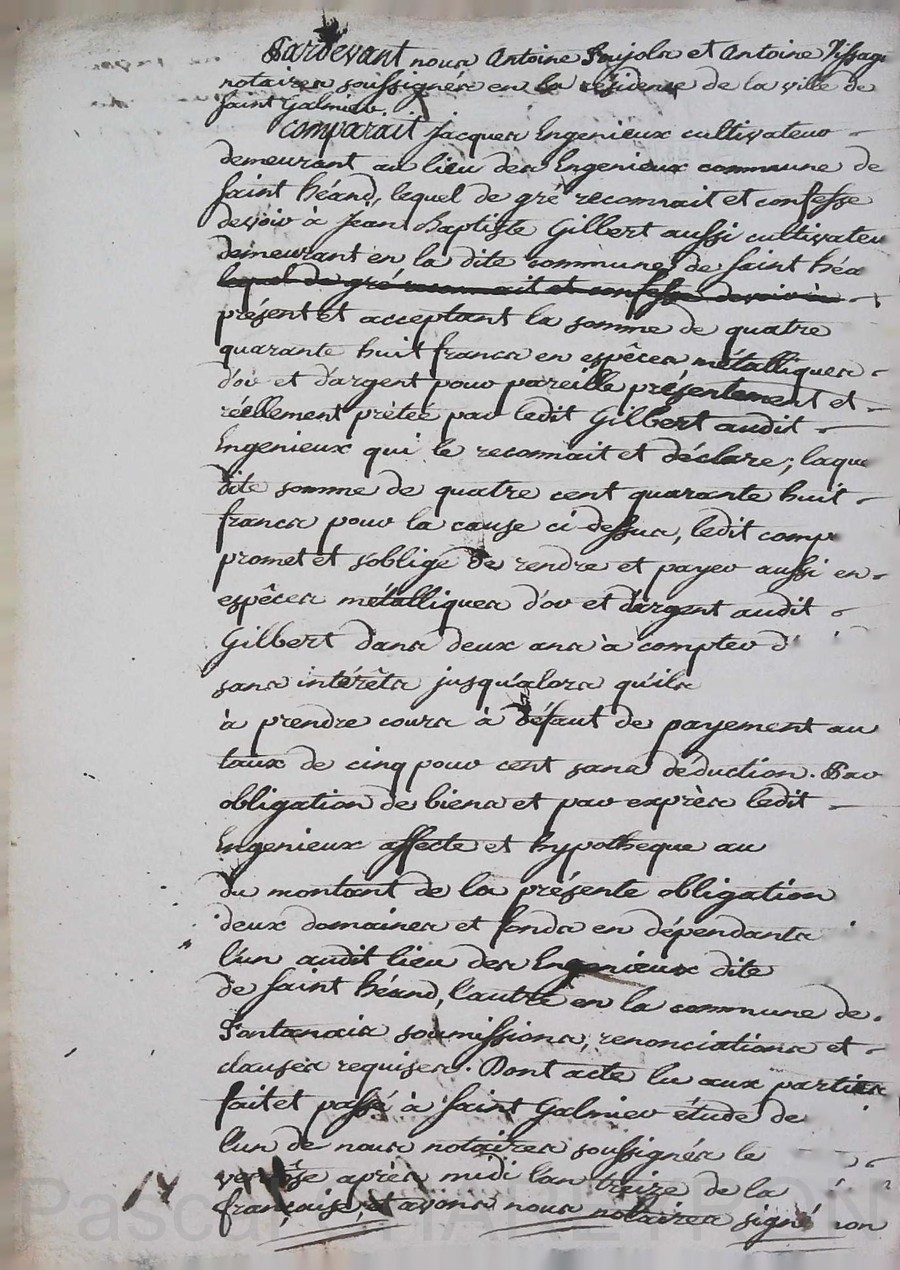 Pardevant nous Antoine Pujols et Antoine
notaires soussignés en la résidence de la ville de
Saint Galmier.
Comparait Jacques Engenieux cultivateur
demeurant au lieu des Engenieux commune de
Saint héand, lequel de gré reconnait et confesse
devoir à Jean Baptiste Gilbert aussi cultivateu
demeurant en la dite commune de Saint héa
lequel de gré reconnait et confesse devoir à
présent et acceptant la somme de quatre
quarante huit francs en espêces métalliques
d'or et d'argent pour pareille présentement et
réellement prêtée par ledit Gilbert audit
Engenieux qui le reconnait et déclare; laque
dite somme de quatre cent quarante huit
francs pour la cause ci dessus, ledit comp
promet et s'oblige de rendre et payer aussi en
espêces métalliques d'or et d'argent audit
Gilbert dans deux ans à compter d'
sans intérêts jusqu'alors qu'ils
à prendre cours à défaut de payement au
taux de cinq pour cent sans déduction. Par
obligation de biens et par exprès ledit
Engenieux affecte et hypotheque au
du montant de la présente obligation
deux domaines et fonds en dépendants
l'un audit lieu des Engenieux dite
de Saint héand, l'autre en la commune de
Fontanais soumissions, renonciations et
clauses requises. Dont acte lu aux parties
fait et passé à Saint Galmier étude de
l'un de nous notaires soussignés le
ventôse après midi l'an treize de la
française, et avons nous notaires signé non
14
Pascal CHARETTON